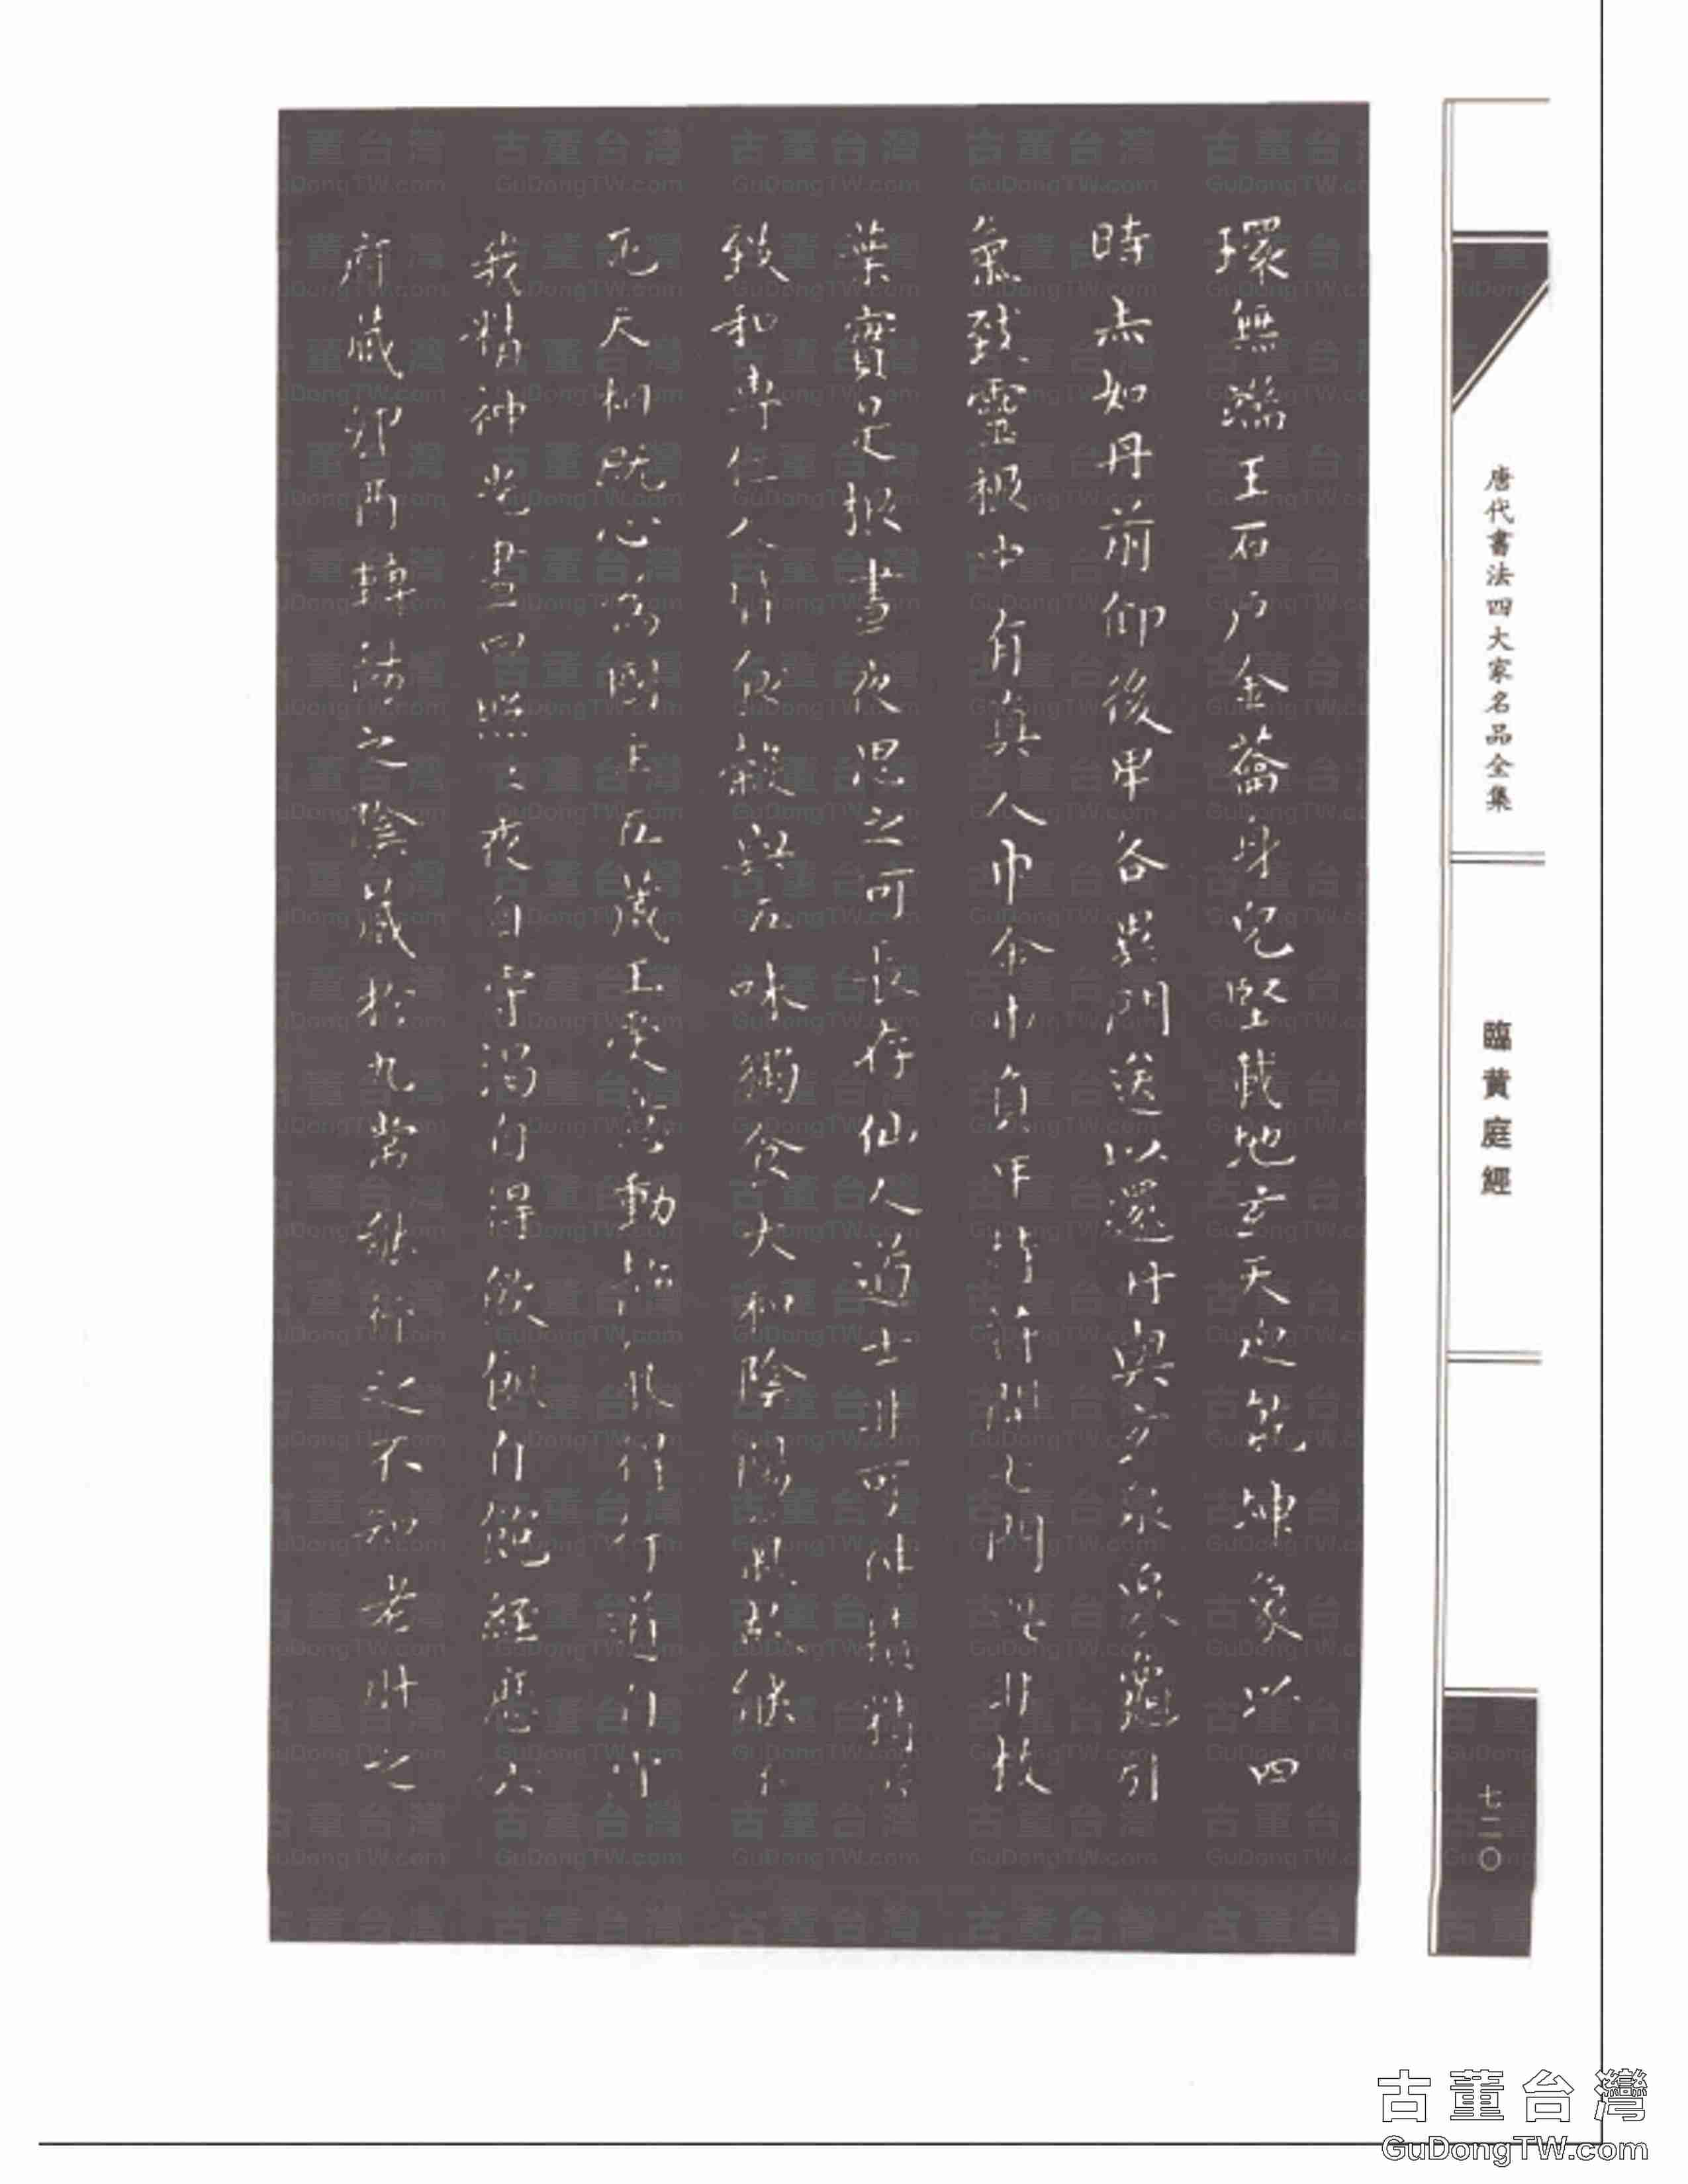 環無端玉石戶金蘥身兒堅載地玄天迎乾坤象以四
時赤如丹前仰後卑各異門送以還丹與玄泉象龜引
氣致靈根中有真人巾金巾負甲持符開七門此非枝
葉實是根晝夜思之可長存仙人道士非可神積精所
致和專仁人皆食穀與五味獨食大和陰陽氣故能不
死天相既心為國主五藏王受意動靜氣得行道自守
我精神光晝日照照夜自守渴自得飲飢自飽經歷六
府藏卯酉轉陽之陰藏於九常能行之不知老肝之
唐代書法四大家名品全集
臨黃庭經
七二〇
古董台灣
GuDongTW.com